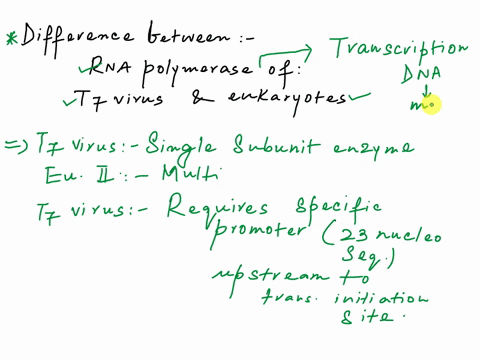 * Difference between :-
✓RNA polymerase of:
✓T7 virus & eukaryotes✓
Transcription
DNA
↓
m
=) T7 virus :- Single Subunit enzyme
Eu. II :- Multi
T7 virus :- Requires specific
promoter (23 nucleo
seq.)
upstream to
trans. initiation
site.